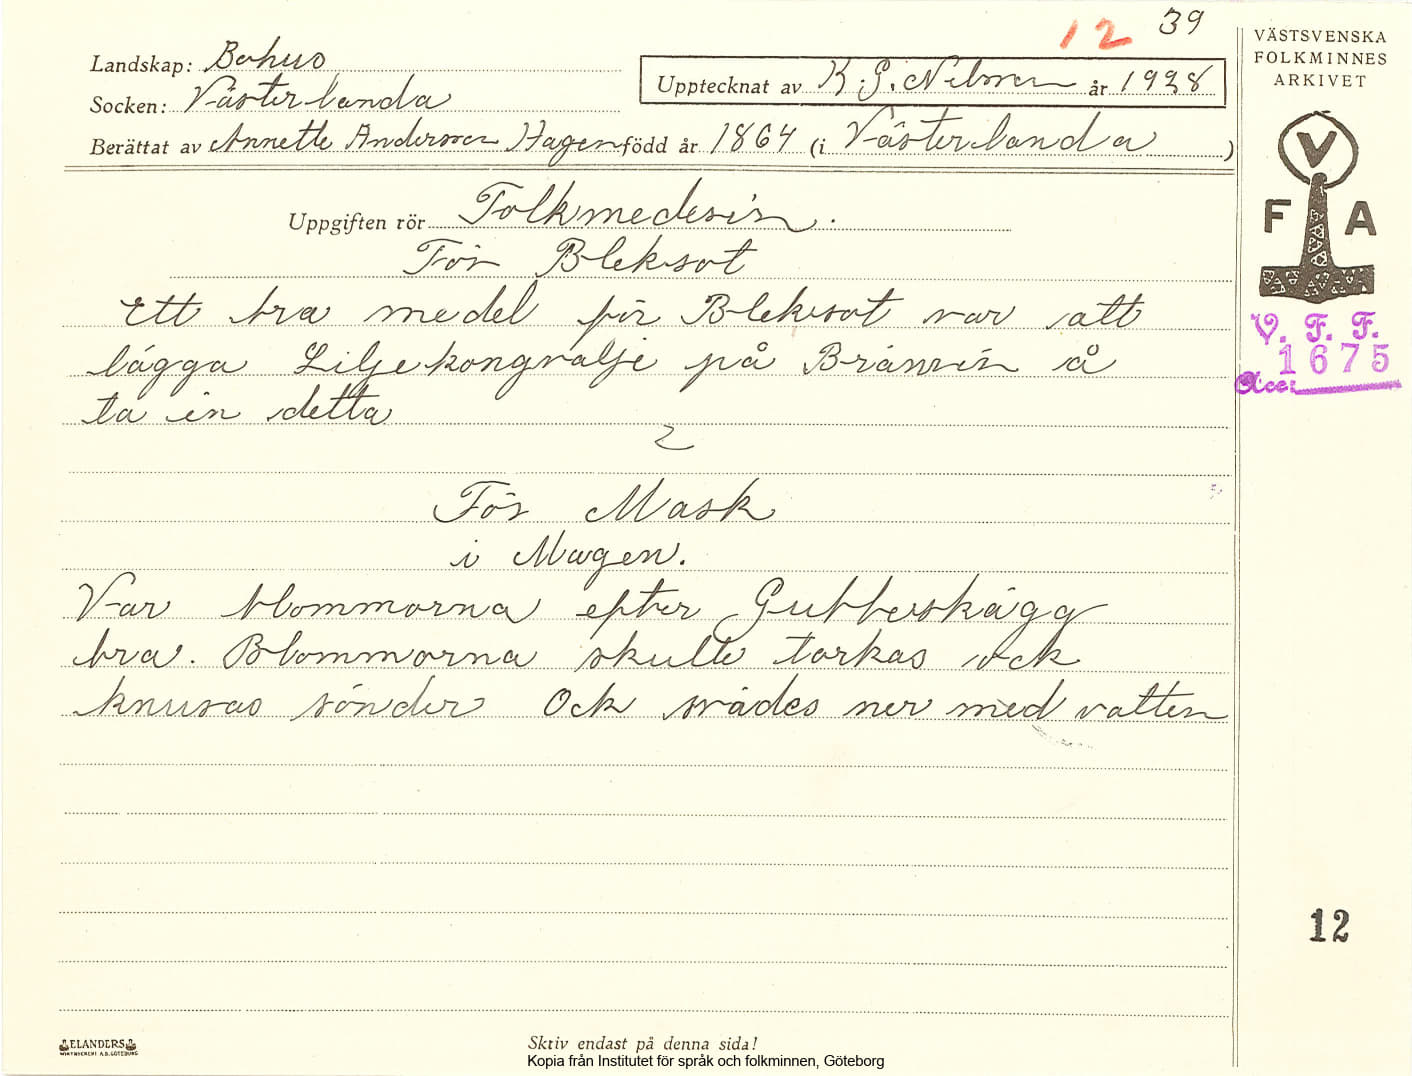 12 39
VÄSTSVENSKA
FOLKMINNES
ARKIVET
Landskap: Bohus
Upptecknat av K. G. Nilsson år 1928
Socken: Västerlanda
Berättat av Annette Andersson Hagen född år 1864 (i Västerlanda )
V
F A
Uppgiften rör Folkmedesin.
För Bleksot
Ett bra medel för Bleksot var att
lägga Liljekongvalje på Bränvin å
ta in detta
V. F. F.
1675
Acc:
2
För Mask
i Magen.
Var blommorna efter Gubbeskägg
bra. Blommorna skulle torkas ock
knusas sönder Ock svädes ner med vatten
12
ELANDERS
Skriv endast på denna sida!
Kopia från Institutet för språk och folkminnen, Göteborg